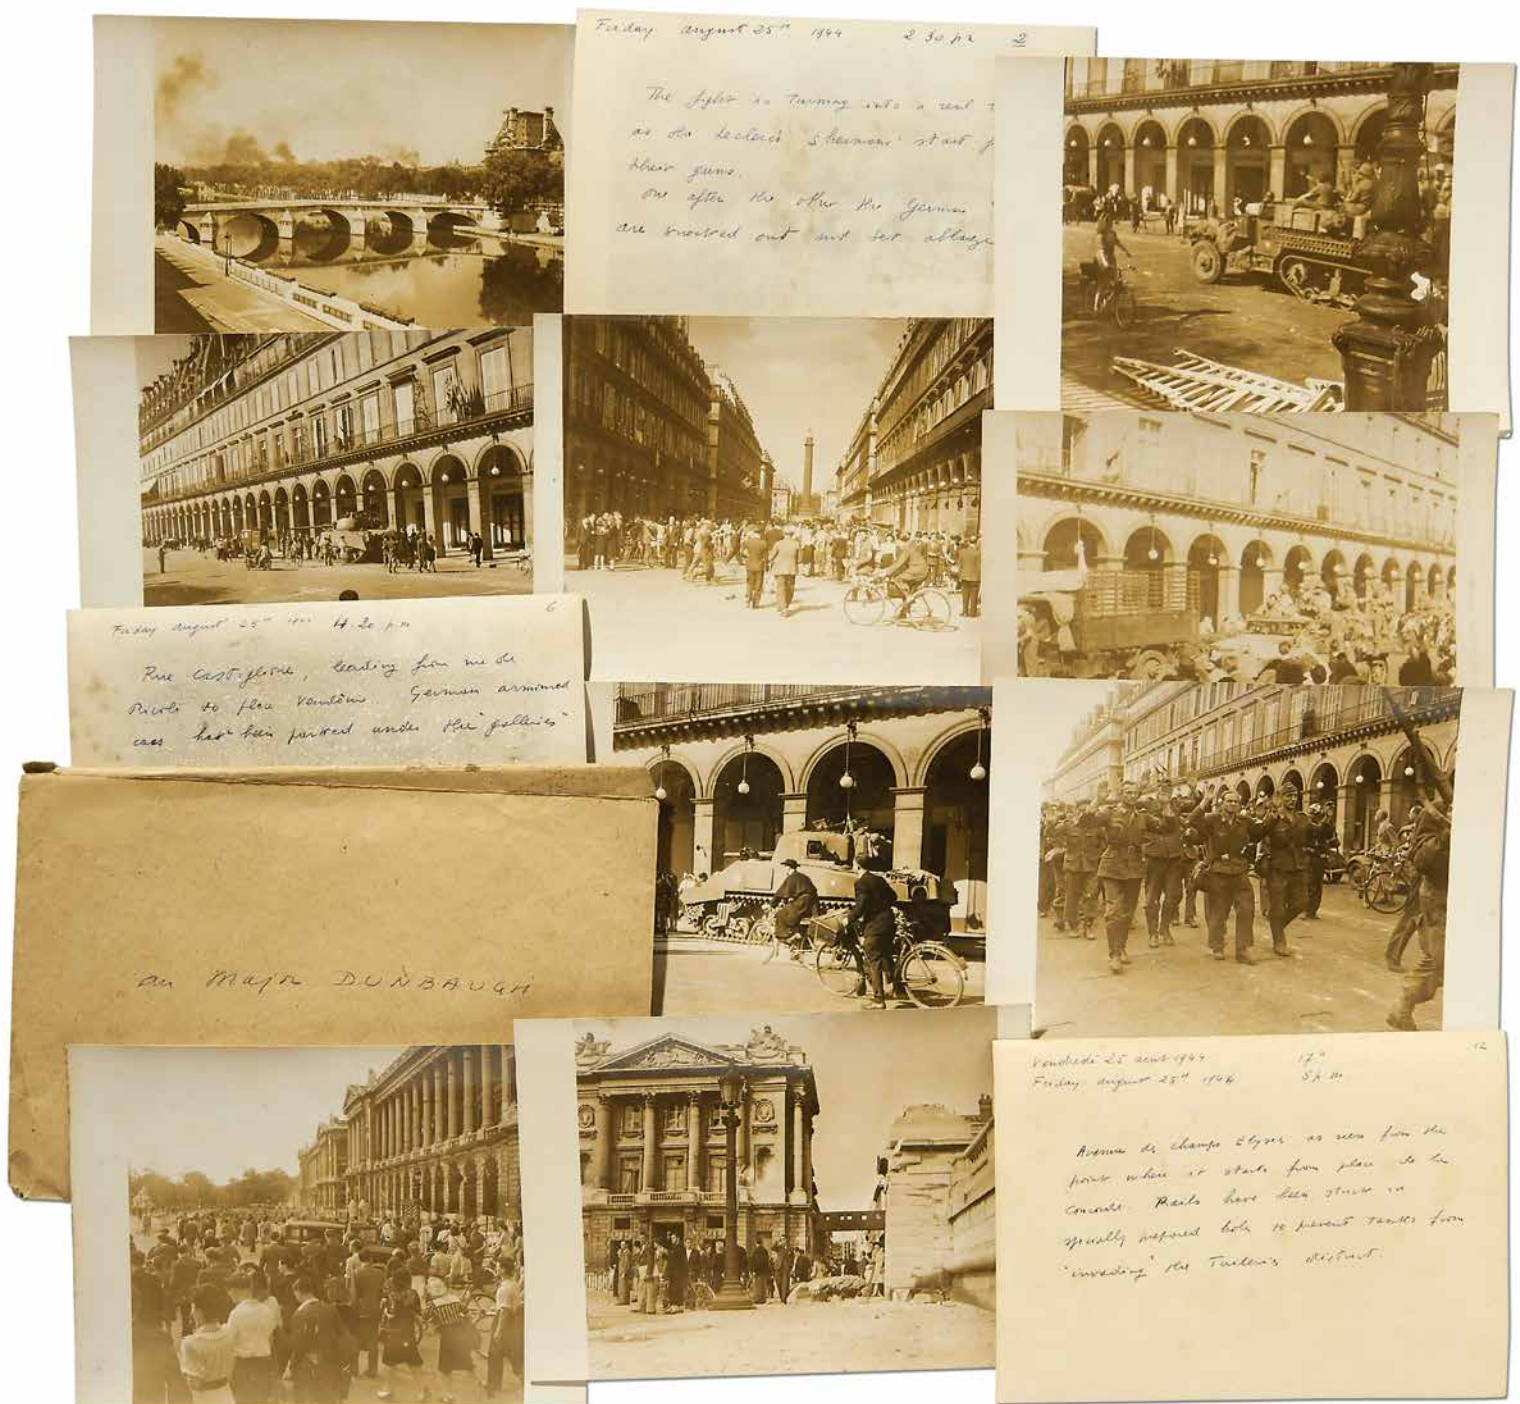 Friday august 25th 1944 2 30 pm 2
The fight is turning into a real
as the Leclerc's shermans start
their guns.
One after the other the German
are knocked out and set ablaze
6
Friday august 25th 4.20 p.m
Rue Castiglione, leading from rue de
Rivoli to place Vendôme. German armoured
cars has been parked under the "galleries"
au Major DUNBAUGH
12
Vendredi 25 aout 1944 17h
Friday august 25th 1944 5 p.m.
Avenue des champs Elysées as seen from the
point where it starts from place de la
Concorde. Rails have been stuck in
specially prepared hols to prevent tanks from
"invading" the Tuileries district.